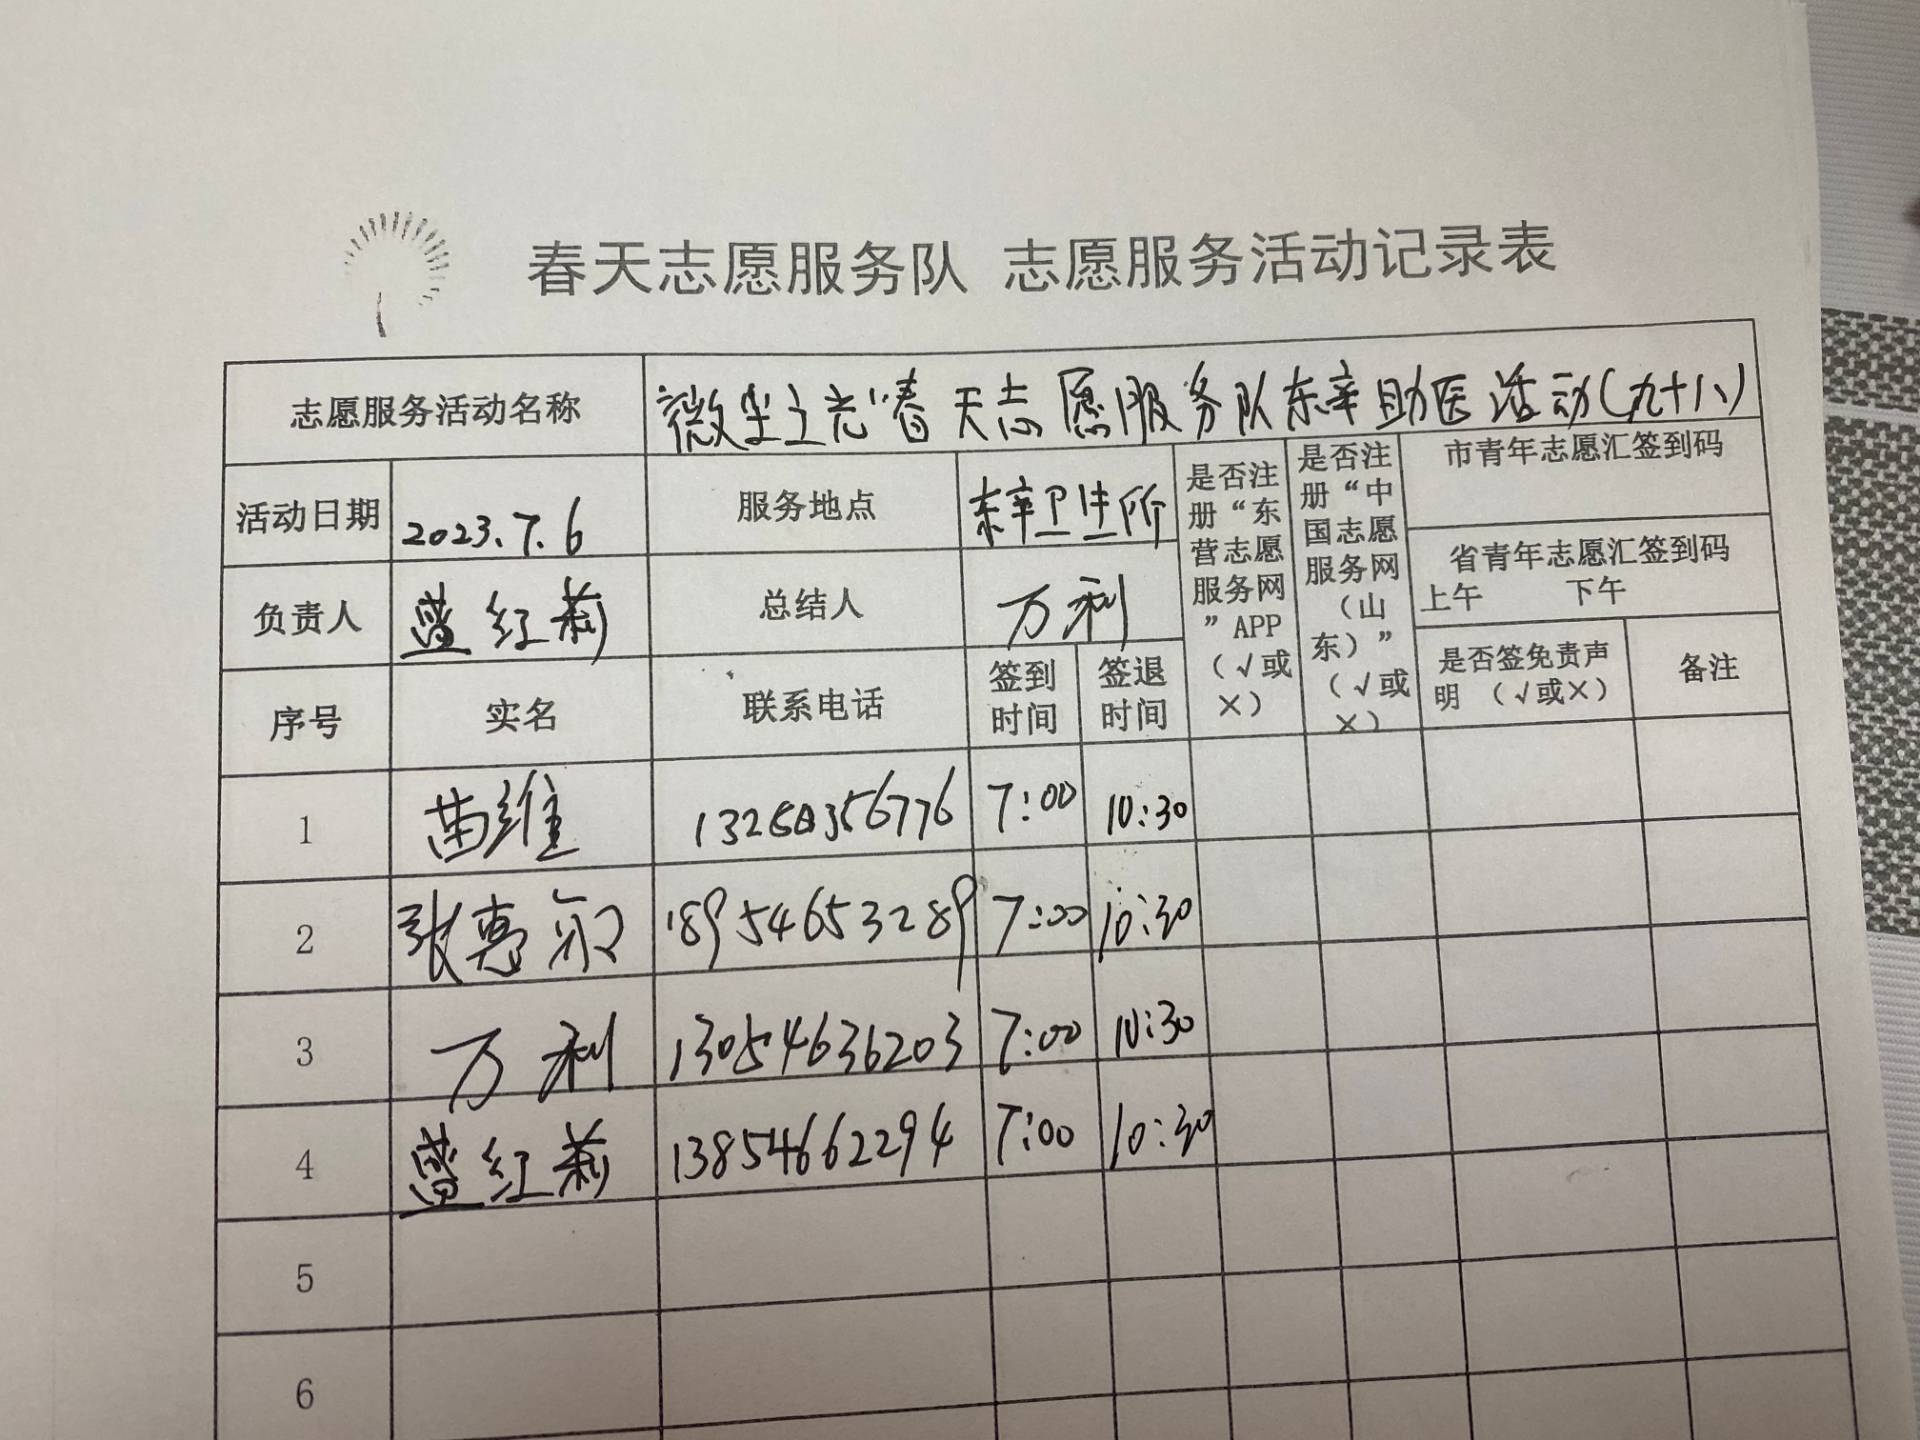 春天志愿服务队 志愿服务活动记录表
志愿服务活动名称 微尘之光"春天志愿服务队东辛助医活动(九十八)
活动日期 2023.7.6 服务地点 东辛卫生所
是否注册“东营志愿服务网”APP（√或×）
是否注册“中国志愿服务网（山东）”（√或×）
市青年志愿汇签到码
省青年志愿汇签到码
上午 下午
负责人 红莉 总结人 万利
序号 实名 联系电话 签到时间 签退时间 是否签免责声明（√或×） 备注
1 苗维 7:00 10:30
2 张惠 18954653289 7:00 10:30
3 万利 13054636203 7:00 10:30
4 红莉 13854662294 7:00 10:30
5
6